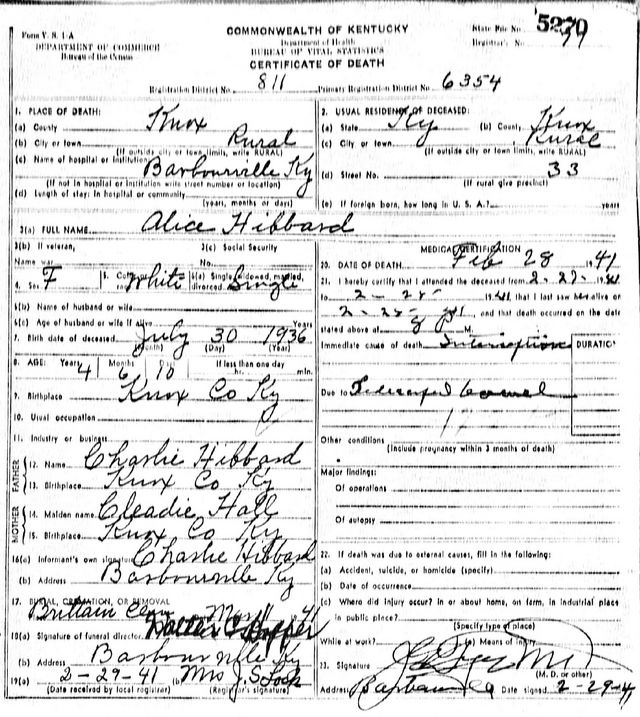 Form V. S. 1-A
DEPARTMENT OF COMMERCE
Bureau of the Census
COMMONWEALTH OF KENTUCKY
Department of Health
BUREAU OF VITAL STATISTICS
CERTIFICATE OF DEATH
State File No. 5270
Registrar's No. 79
Registration District No. 811 Primary Registration District No. 6354
1. PLACE OF DEATH:
(a) County Knox
(b) City or town Rural
(If outside city or town limits, write RURAL)
(c) Name of hospital or institution Barbourville Ky
(If not in hospital or institution write street number or location)
(d) Length of stay: In hospital or community
(years, months or days)
2. USUAL RESIDENCE OF DECEASED:
(a) State Ky (b) County Knox
(c) City or town Rural
(If outside city or town limits, write RURAL)
(d) Street No. 33
(If rural give precinct)
(e) If foreign born, how long in U. S. A.? years
3(a) FULL NAME Alice Hibbard
3(b) If veteran, 3(c) Social Security
Name war No.
4. Sex F 5. Color or race White 6(a) Single, widowed, married, divorced Single
6(b) Name of husband or wife
6(c) Age of husband or wife if alive Years
7. Birth date of deceased July 30 1936
(Month) (Day) (Year)
8. AGE: Years Months Days If less than one day
4 6 hr. min.
9. Birthplace Knox Co Ky
10. Usual occupation
11. Industry or business
FATHER
12. Name Charlie Hibbard
13. Birthplace Knox Co Ky
MOTHER
14. Maiden name Cleadie Hall
15. Birthplace Knox Co Ky
16(a) Informant's own signature Charlie Hibbard
(b) Address Barbourville Ky
17. BURIAL, CREMATION, OR REMOVAL
Brittain Cem
18(a) Signature of funeral director
(b) Address Barbourville Ky
19(a) 2-29-41 (b) Mrs J. S. Lock
(Date received by local registrar) (Registrar's signature)
MEDICAL CERTIFICATION
20. DATE OF DEATH Feb 28 1941
21. I hereby certify that I attended the deceased from 2-27- 1941
to 2-28- 1941 that I last saw alive on
2-28- 41, and that death occurred on the date
stated above at 8 P M.
Immediate cause of death DURATION
Due to
Other conditions
(Include pregnancy within 3 months of death)
Major findings:
Of operations
Of autopsy
22. If death was due to external causes, fill in the following:
(a) Accident, suicide, or homicide (specify)
(b) Date of occurrence
(c) Where did injury occur? In or about home, on farm, in industrial place
in public place?
(Specify type of place)
While at work? (e) Means of injury
23. Signature
(M. D. or other)
Address Date signed 2-29-41